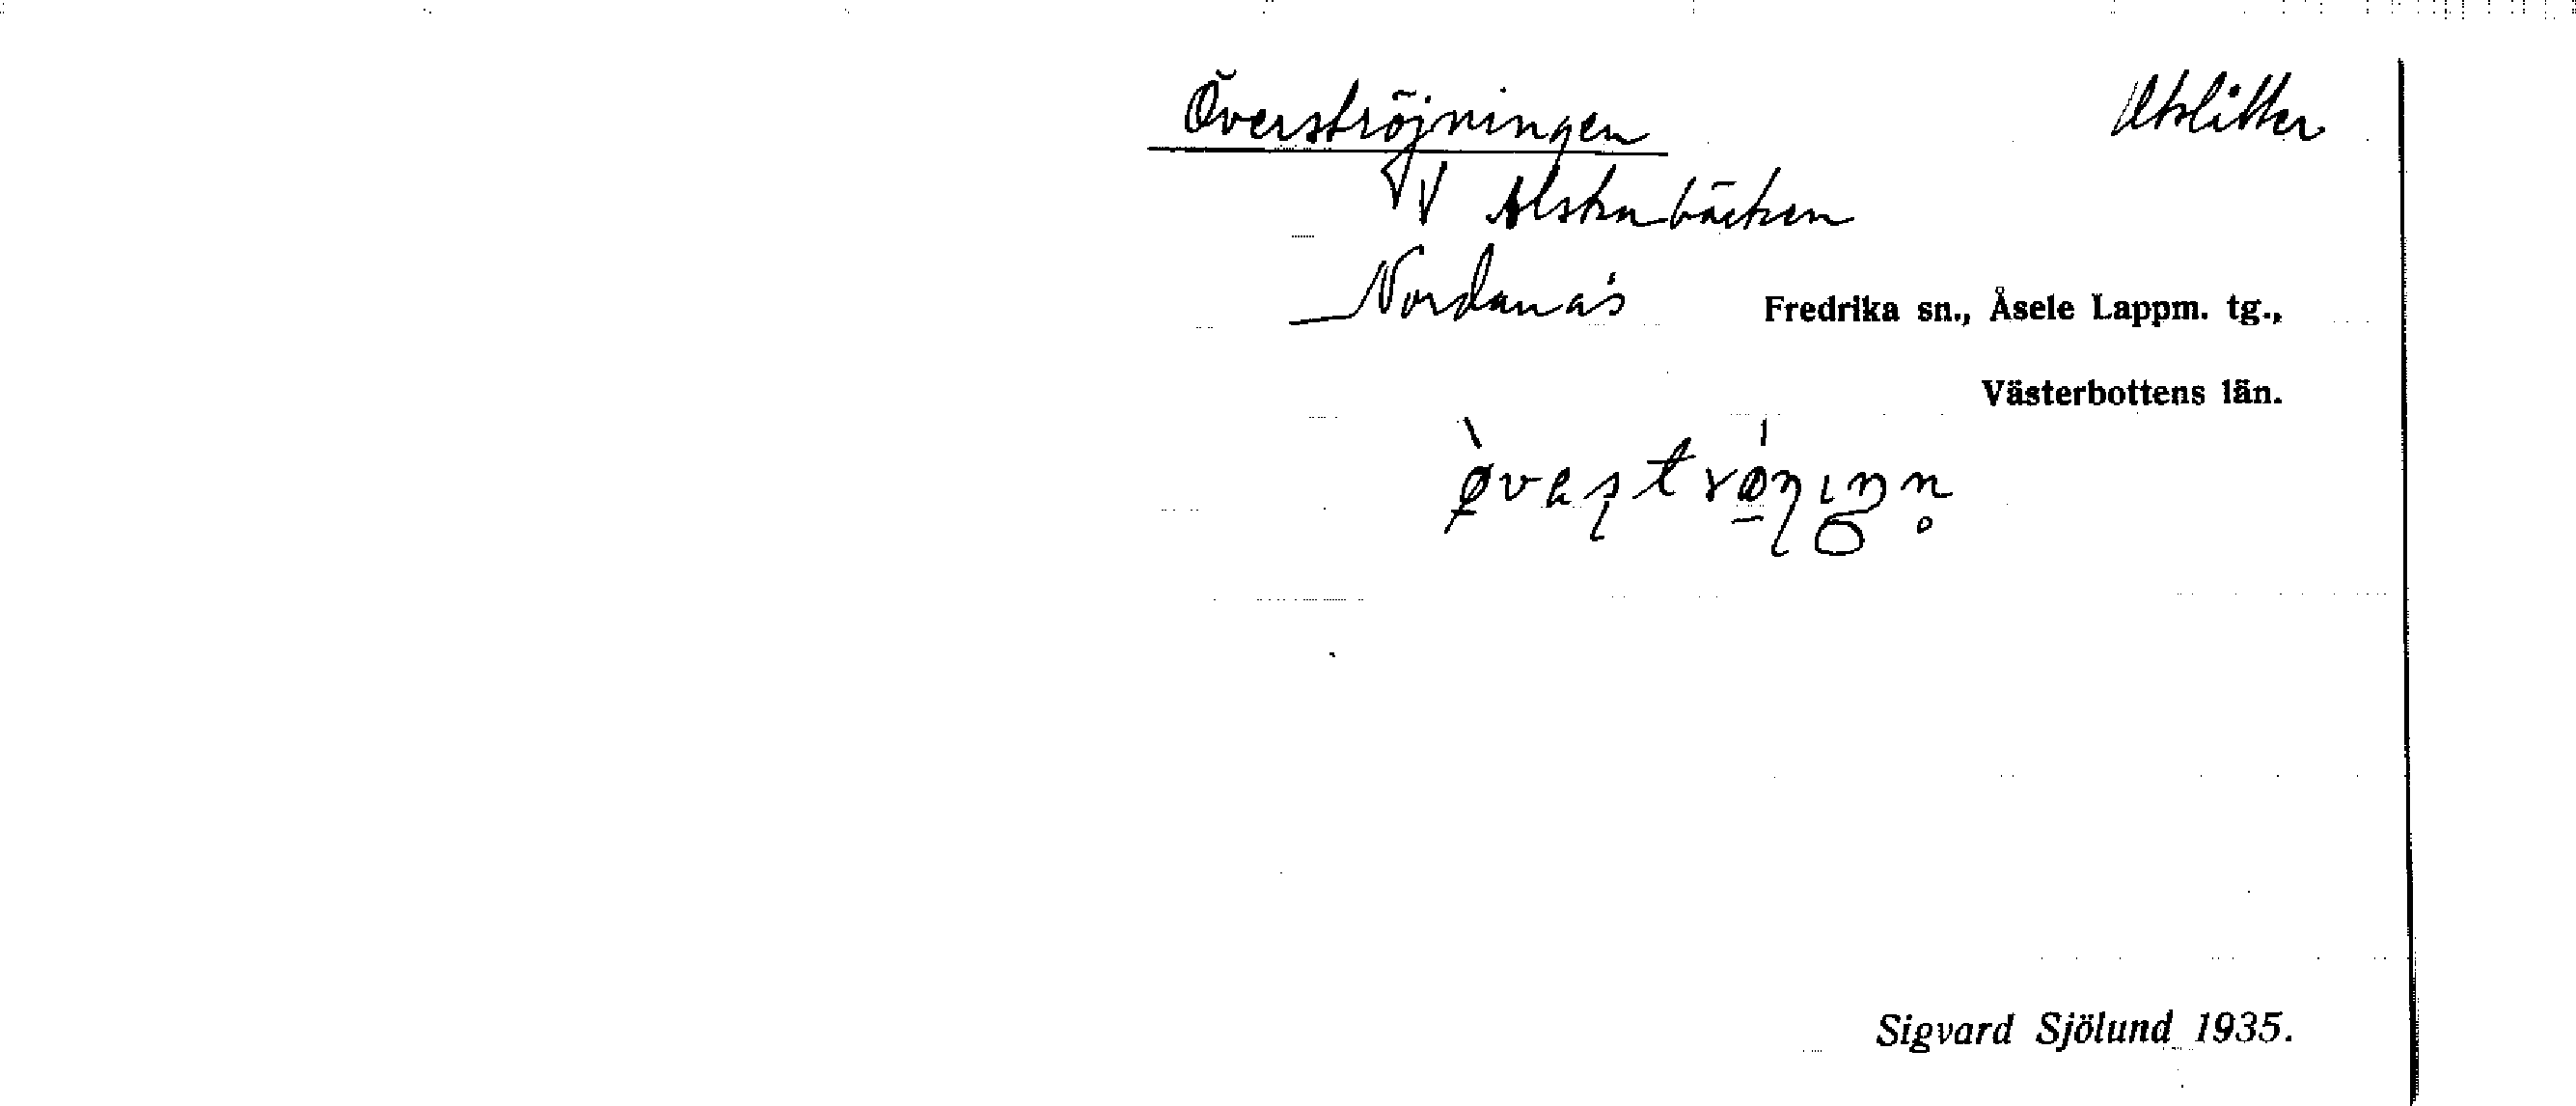 Överströjningen Utslåtter
V Alskabäcken
Nordanås Fredrika sn., Åsele Lappm. tg.,
Västerbottens län.
Sigvard Sjölund 1935.